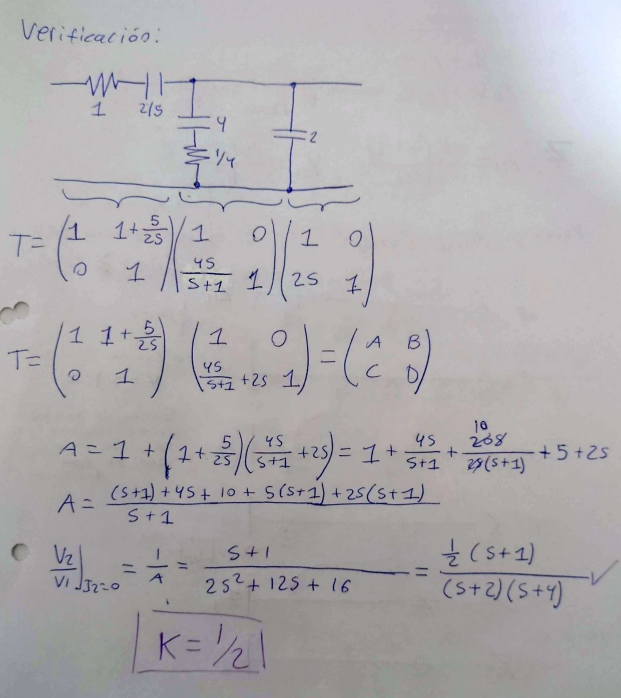 Verificación:
1 2/5 4 1/4 2
T= (1 1+5/2S; 0 1) (1 0; 4S/S+1 1) (1 0; 2S 1)
T= (1 1+5/2S; 0 1) (1 0; 4S/S+1 +2S 1) = (A B; C D)
A = 1 + (1+5/2S)(4S/S+1 +2S) = 1 + 4S/S+1 + 10/(S+1) + 5 + 2S
A = (S+1)+4S+10+5(S+1)+2S(S+1)/S+1
V2/V1]I2=0 = 1/A = S+1/2S²+12S+16 = 1/2 (S+1)/(S+2)(S+4) ✓
K = 1/2